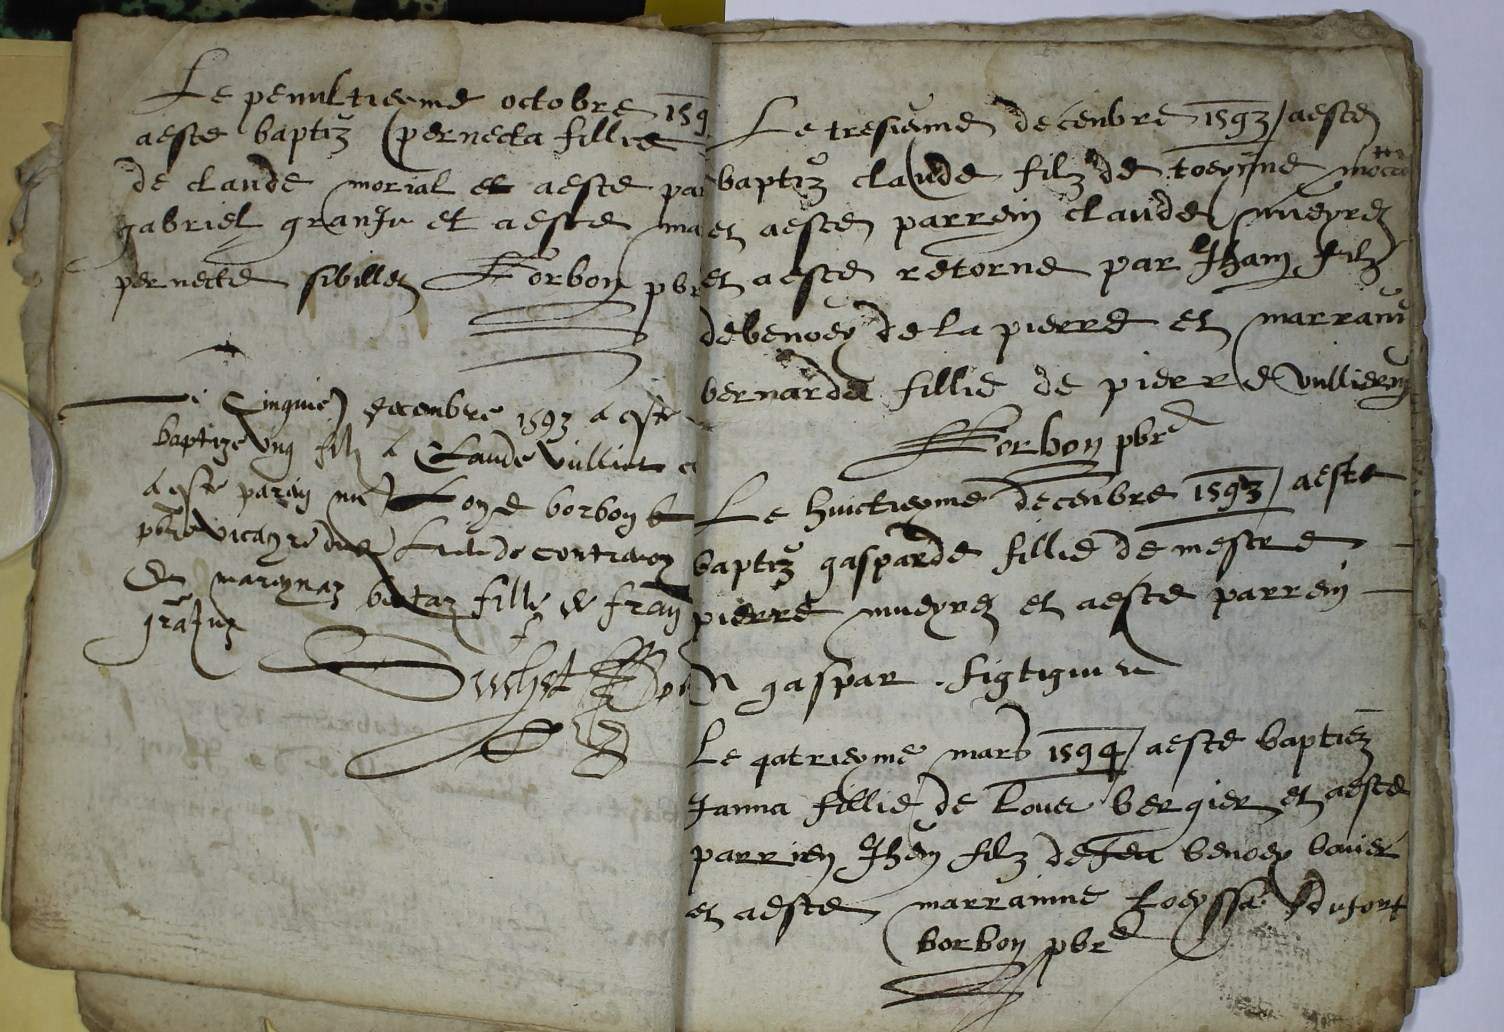 Le penultieyme octobre 159
aeste baptiz pernecta fillie
de claude morial et aeste par
gabriel granJu et aeste ma
pernecte sibillet Borbon pbr
Le cinquie decembre 1593 a este
baptize ung filz a Claude vulliet e
a este parain me Loys borbon
pbre vicayre dud Lieu de
Et mareynaz filly de fran
grāJuz
Duchet
Le tresieyme decenbre 1593 / aeste
baptiz claude filz de toeynne
et aeste parrein claude mueyrez
et aeste retorne par Jhan filz
de benoey de la pierre et marrainne
bernarda fillie de pierre vullierm
Borbon pbre
Le huictieyme decenbre 1593 / aeste
baptiz gasparde fillie de mestre
pierre mueyrez et aeste parrein
gaspar .
Le qatrieyme mars 1594 / aeste baptiez
Janna fillie de Loues bergier et aeste
parrien Jhen filz de feu benoey bouier
et aeste marrainne Loeyssa dufort
borbon pbre